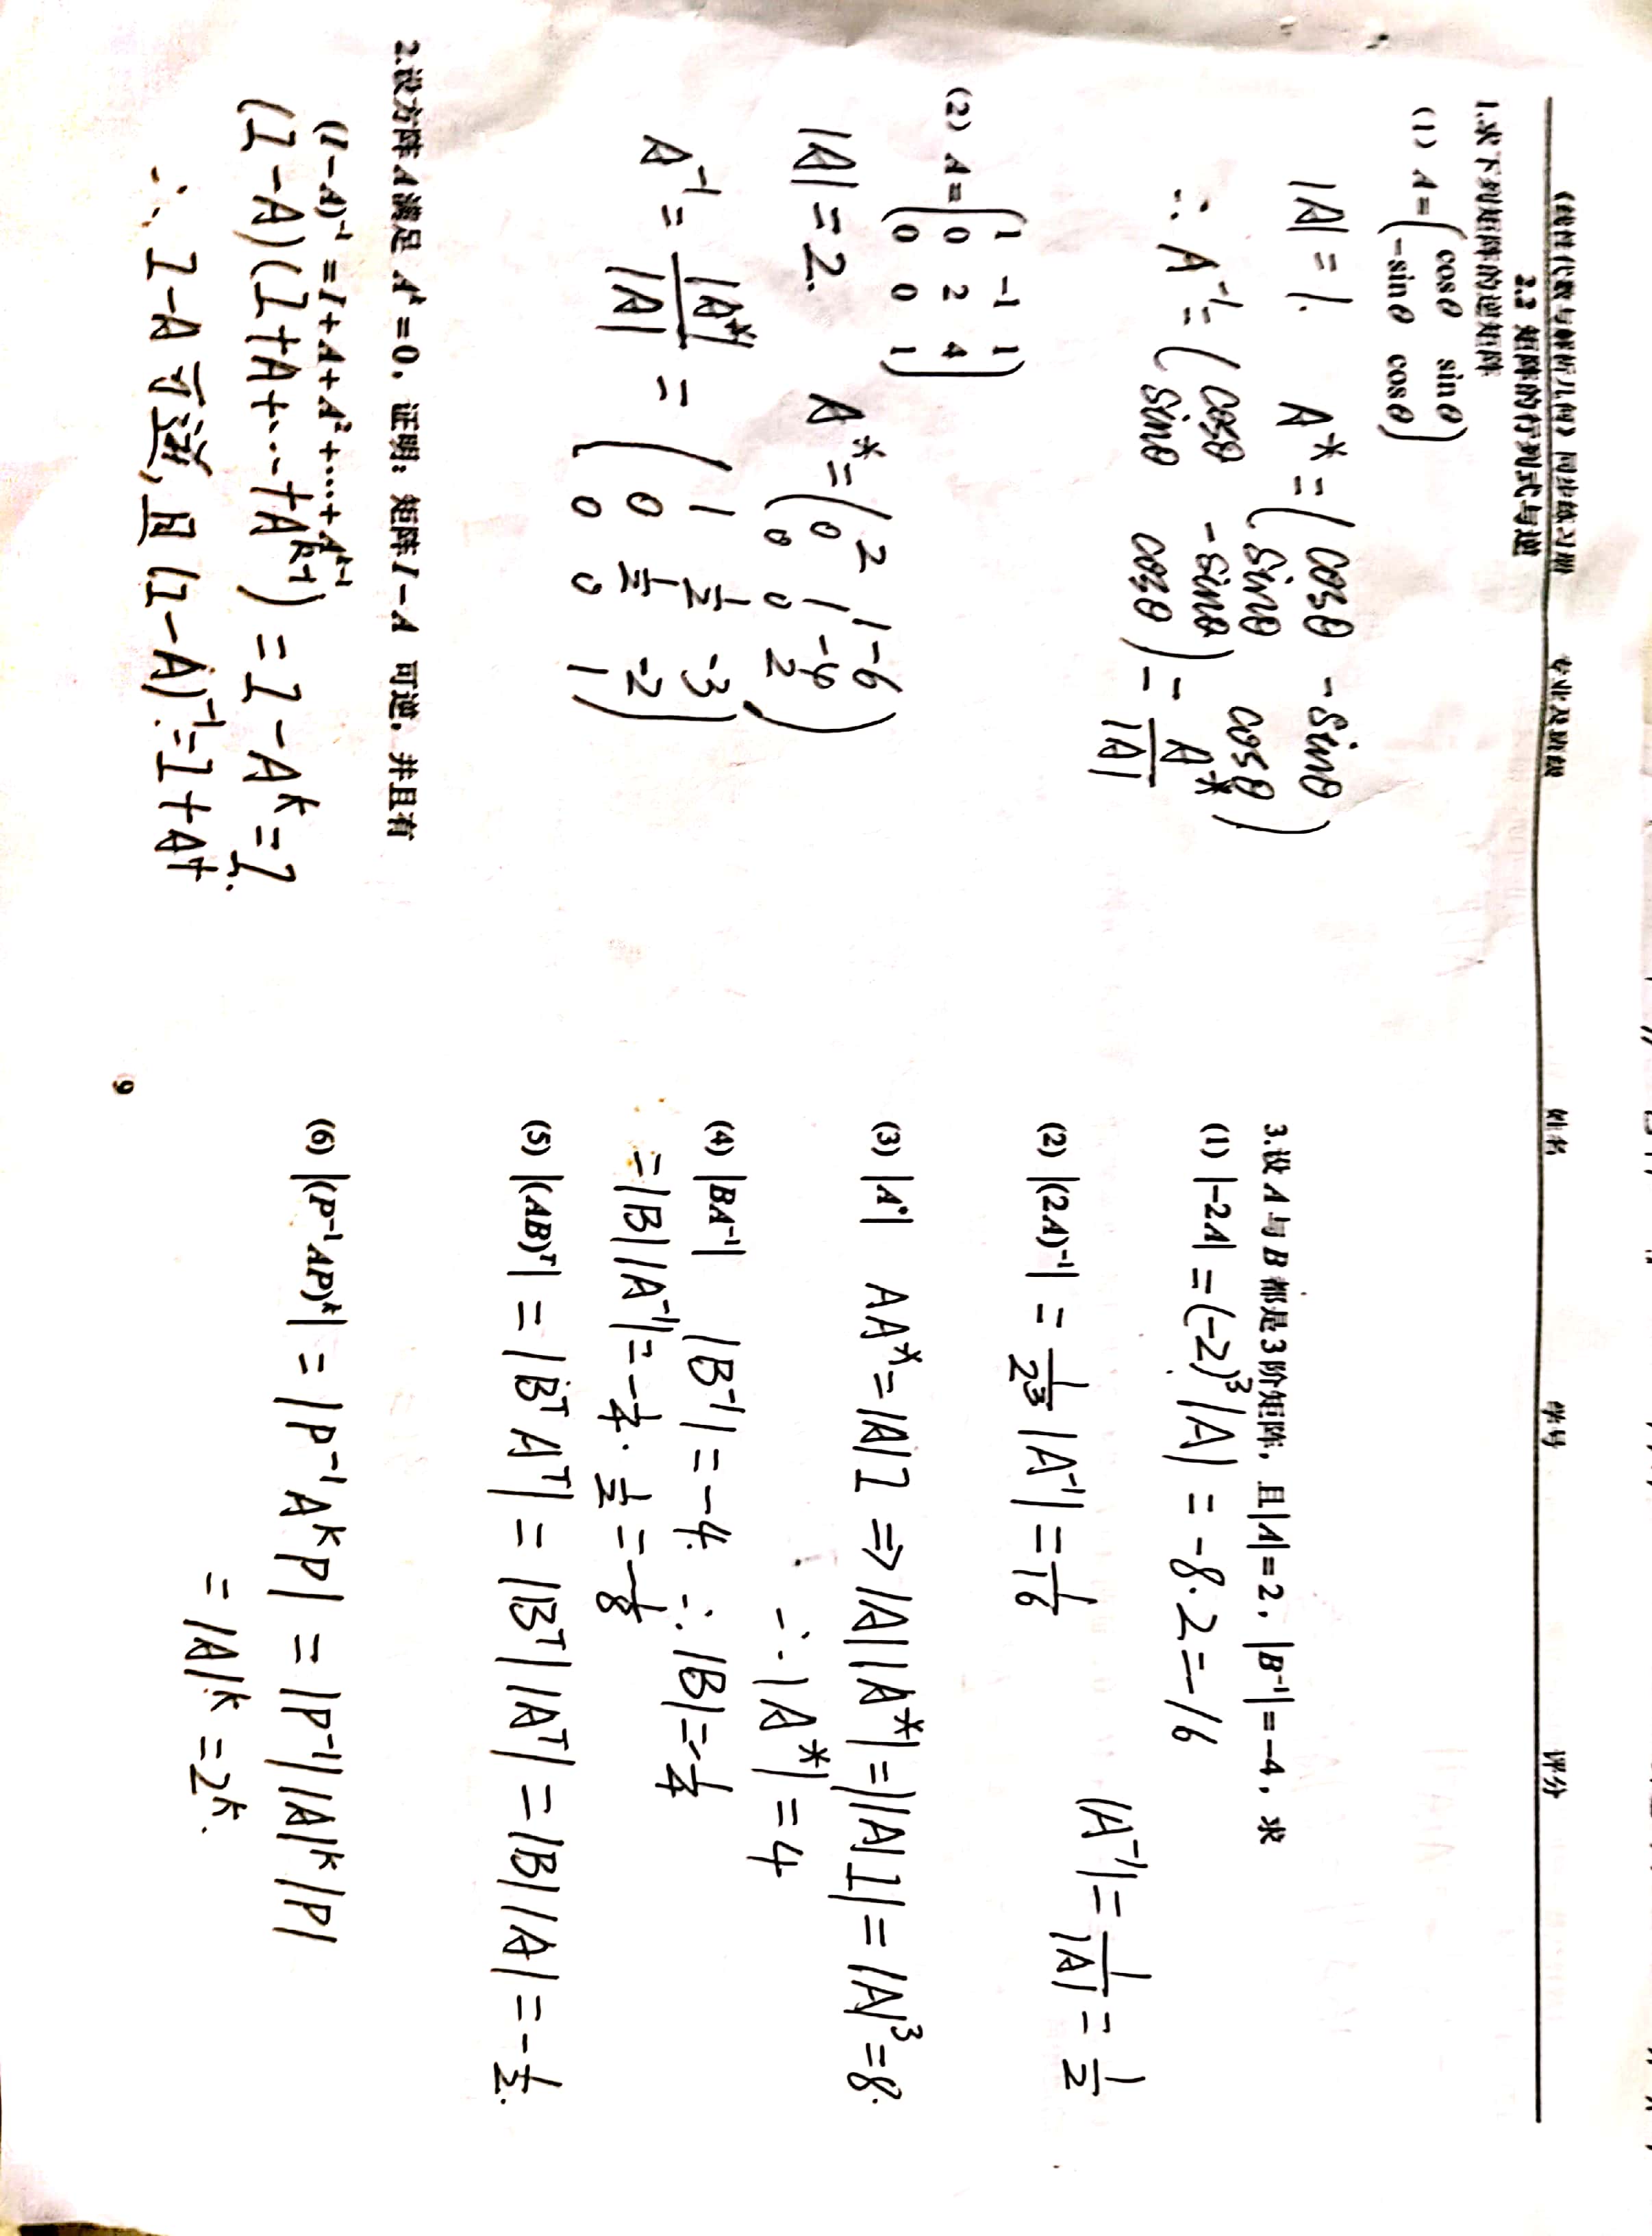 《线性代数与解析几何》同步练习册 专业及班级 姓名 学号 评分
2.2 矩阵的行列式与逆
1.求下列矩阵的逆矩阵
(1) A=
(cosθ sinθ
-sinθ cosθ)
|A|=1. A*=
(cosθ -sinθ
sinθ cosθ)
∴ A⁻¹=
(cosθ -sinθ
sinθ cosθ) = A*/|A|
(2) A=
(1 -1 1
0 2 4
0 0 1)
|A|=2. A*=
(2 1 -6
0 1 -4
0 0 2)
A⁻¹= |A*|/|A| =
(1 1/2 -3
0 1/2 -2
0 0 1)
2.设方阵A满足 Aᵏ=0, 证明: 矩阵I-A 可逆, 并且有
(I-A)⁻¹=I+A+A²+⋯+Aᵏ⁻¹
(I-A)(I+A+⋯+Aᵏ⁻¹)=I-Aᵏ=I.
∴ I-A 可逆, 且(I-A)⁻¹=I+A+
3.设A与B都是3阶矩阵, 且|A|=2, |B⁻¹|=-4, 求
(1) |-2A| =(-2)³|A| = -8·2=-16
|A⁻¹|=1/|A|=1/2
(2) |(2A)⁻¹| = 1/2³ |A⁻¹| = 1/16
(3) |A*| AA*=|A|I ⇒ |A||A*|=||A|I|=|A|³=8.
∴ |A*|=4
(4) |BA⁻¹| |B⁻¹|=-4. ∴ |B|=-1/4
=|B||A⁻¹|=-1/4·1/2=-1/8
(5) |(AB)ᵀ| = |BᵀAᵀ| = |Bᵀ||Aᵀ| = |B||A| = -1/2.
(6) |(P⁻¹AP)ᵏ| = |P⁻¹AᵏP| = |P⁻¹||A|ᵏ|P|
= |A|ᵏ =2ᵏ.
9